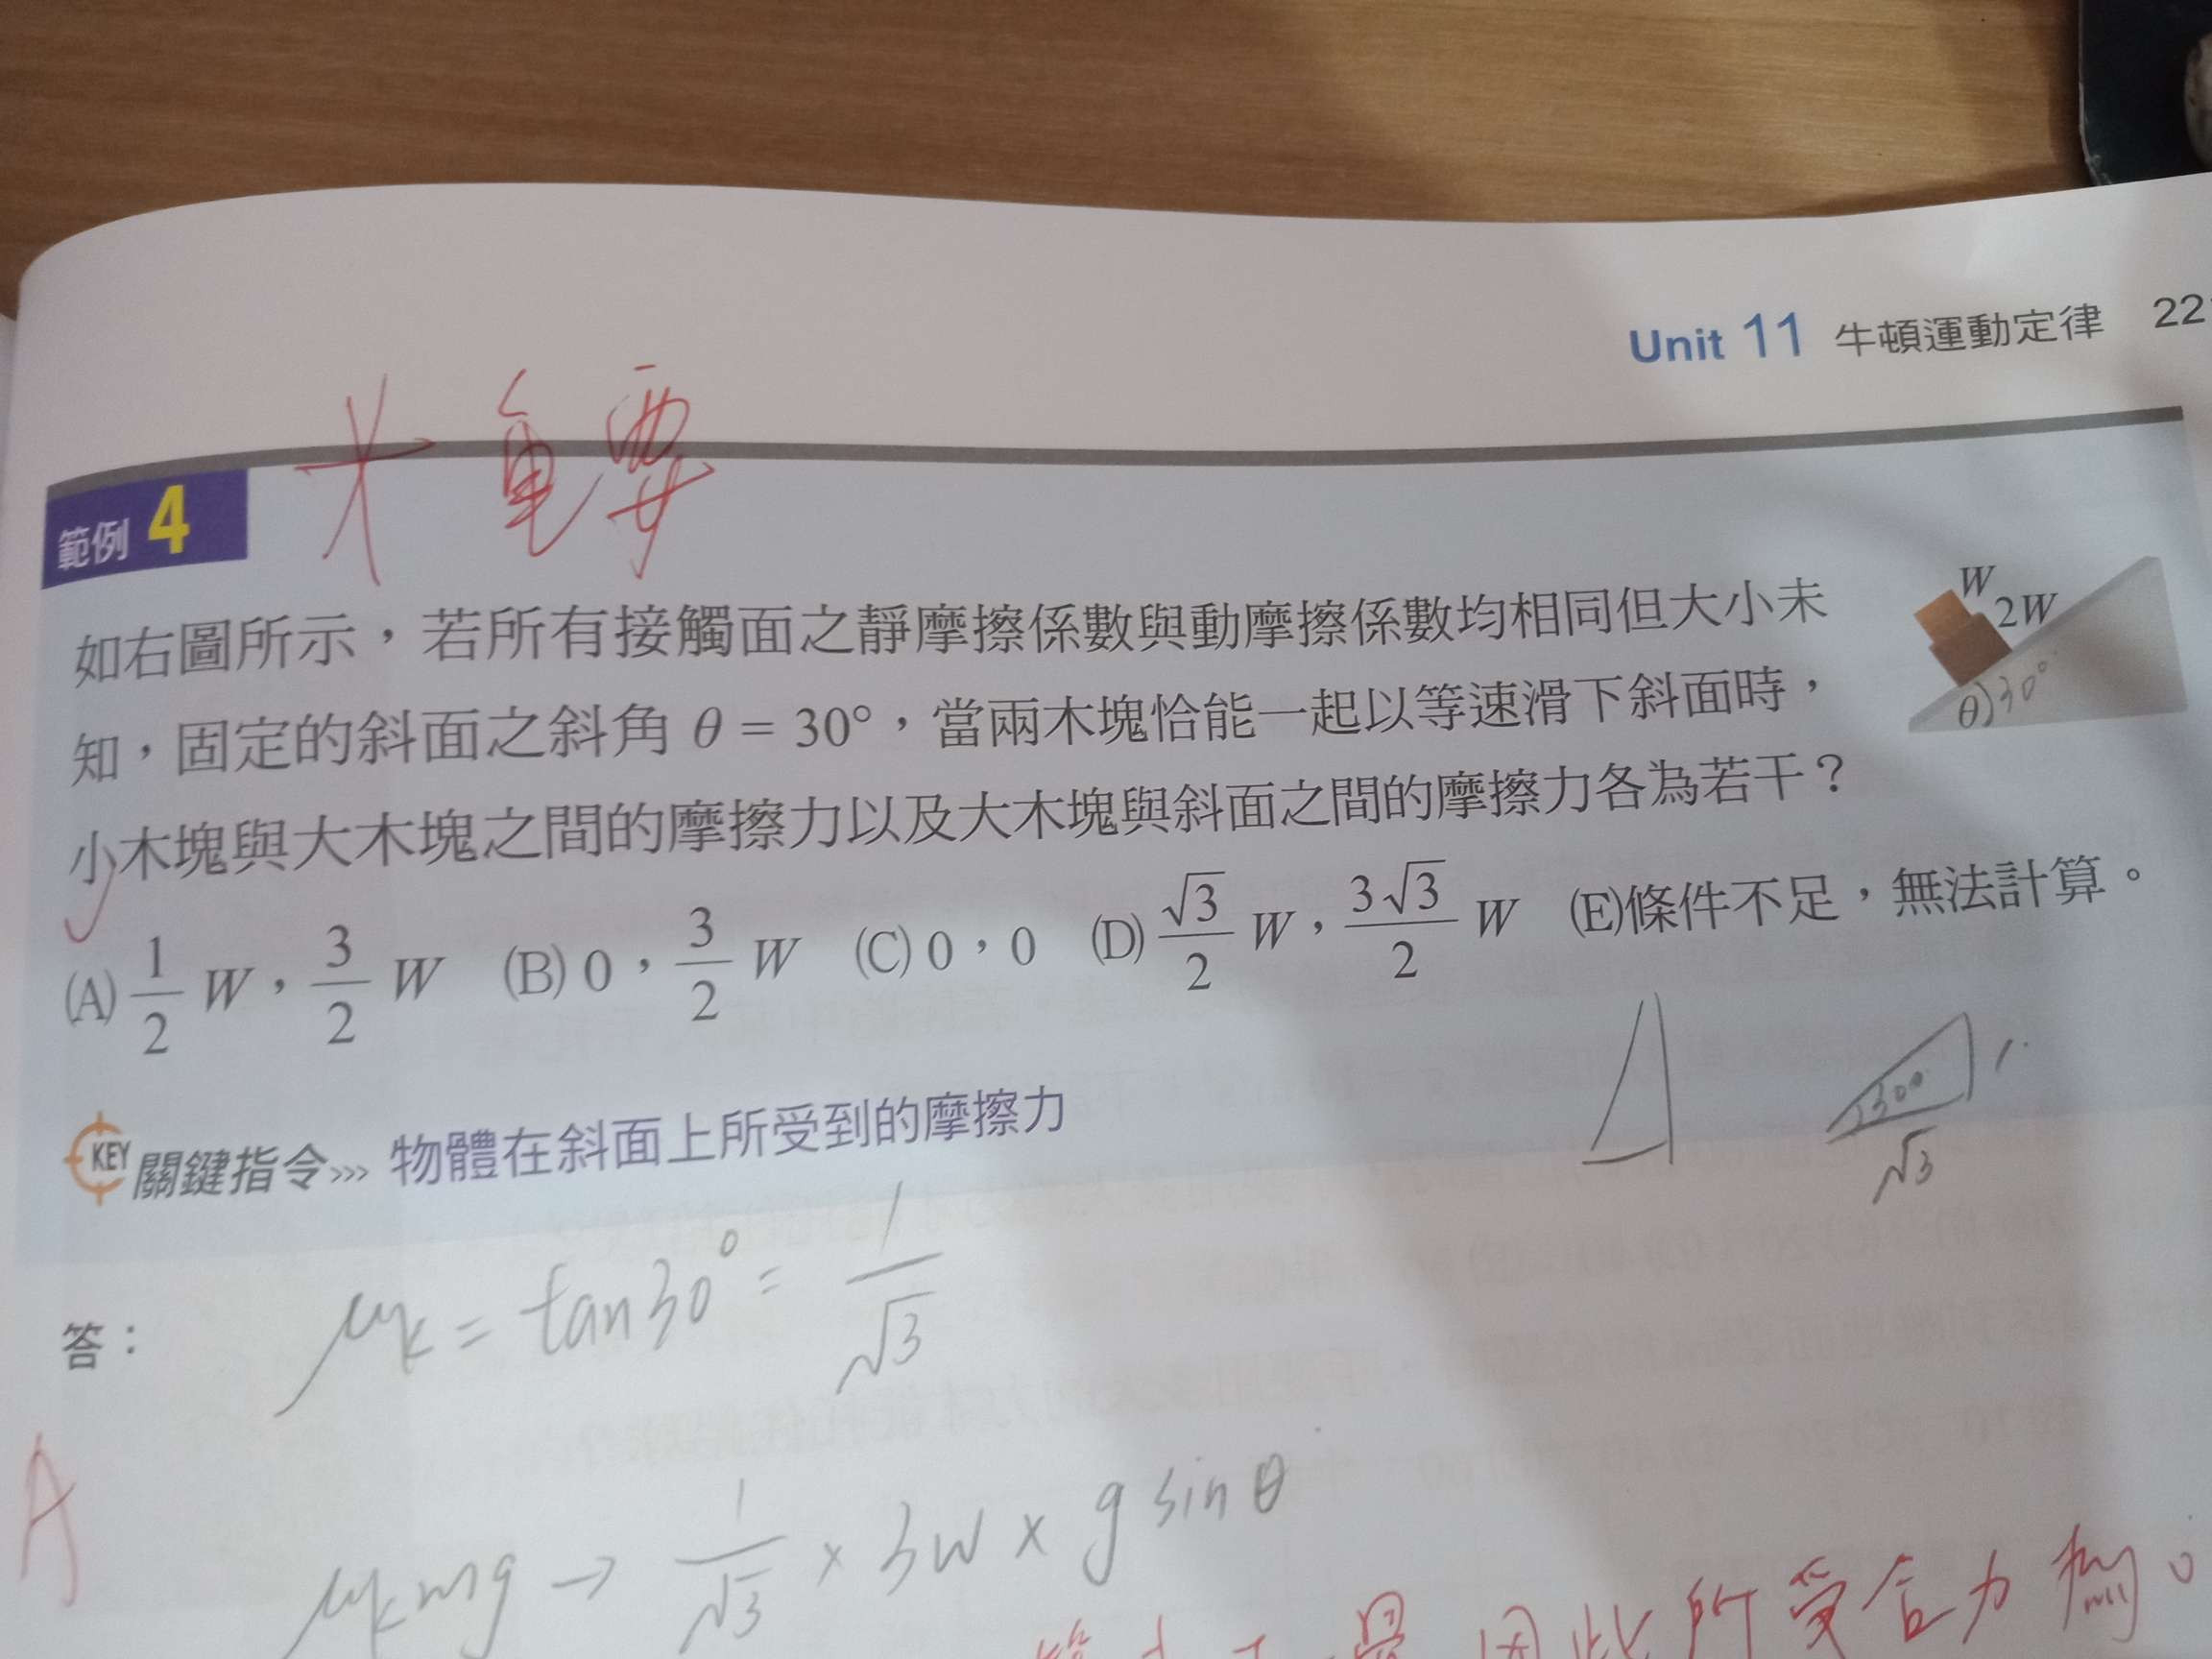 Unit 11 牛頓運動定律 22
重要
範例 4
如右圖所示，若所有接觸面之靜摩擦係數與動摩擦係數均相同但大小未
知，固定的斜面之斜角 θ = 30°，當兩木塊恰能一起以等速滑下斜面時，
小木塊與大木塊之間的摩擦力以及大木塊與斜面之間的摩擦力各為若干？
W
2W
θ 30°
(A) 1/2 W，3/2 W (B) 0，3/2 W (C) 0，0 (D) √3/2 W，3√3/2 W (E)條件不足，無法計算。
30° 1
√3
KEY 關鍵指令››› 物體在斜面上所受到的摩擦力
μk = tan30° = 1/√3
答：
A
μk mg → 1/√3 × 3W × g sinθ
因此所受合力為0